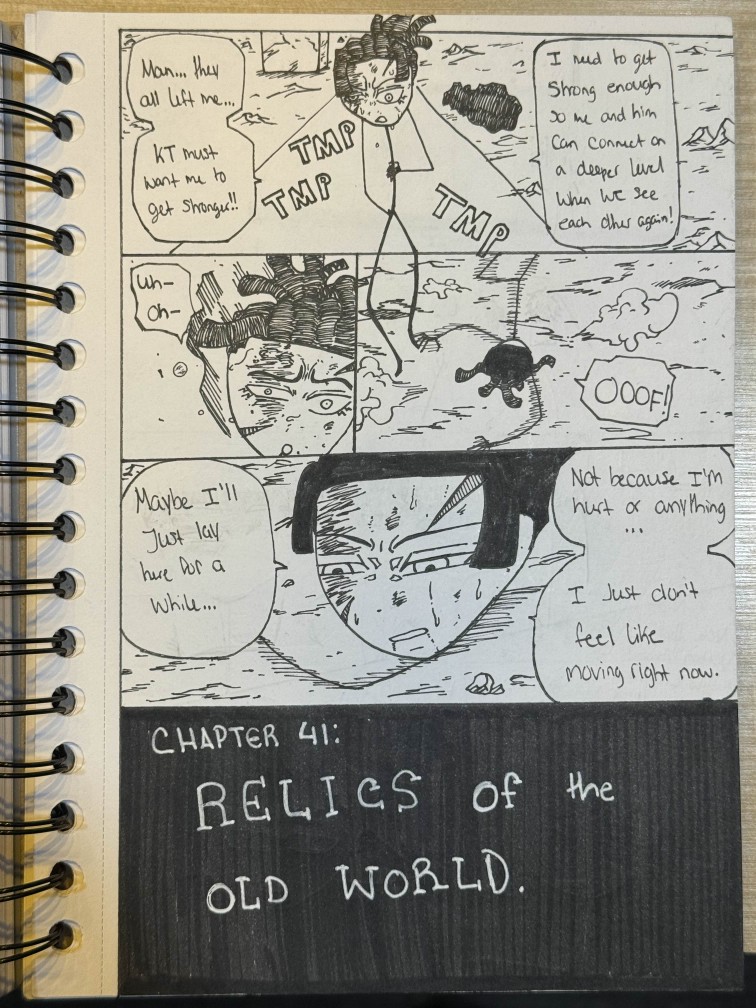 Man... they
all left me...
KT must
want me to
get stronger!!
TMP
TMP
TMP
I need to get
strong enough
so me and him
can connect on
a deeper level
when we see
each other again!
Uh-
Oh-
OOOF!
Maybe I'll
Just lay
here for a
while...
Not because I'm
hurt or anything
...
I Just don't
feel like
moving right now.
CHAPTER 41:
RELICS of the
OLD WORLD.